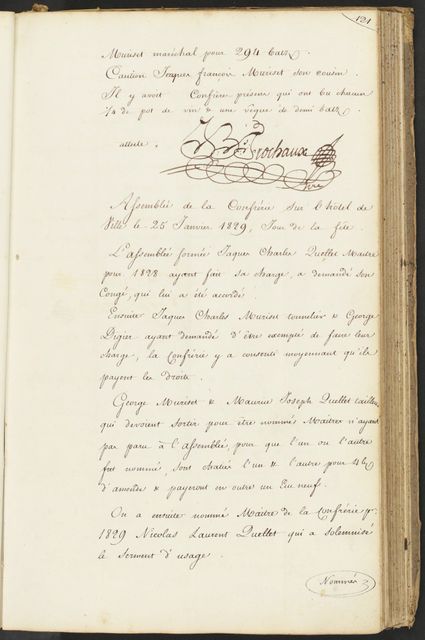 121
Muriset maréchal pour 294 batz.
Caution Jaques françois Muriset son cousin.
Il y avoit Confrère présens qui ont bu chacun
1/8 de pot de vin & une vêque de demi batz.
atteste.
Frochaux
Assemblée de la Confrérie sur l'hôtel de
Ville le 25 Janvier 1829, Jour de la fête.
L'assemblée formée Jaques Charles Quellet Maitre
pour 1828 ayant fait sa charge, a demandé son
Congé, qui lui a été accordé.
Ensuite Jaques Charles Muriset tonnelier & George
Digier ayant demandé d'être exempté de faire leur
charge, la Confrérie y a consenti moyennant qu'ils
payent les droits.
George Muriset & Maurice Joseph Quellet tailleur
qui devoient sortir pour être nommés Maitres n'ayant
pas paru à l'assemblée, pour que l'un ou l'autre
fut nommé, sont chatiés l'un & l'autre pour 4 bz
d'amende & payeront en outre un Ecu neuf.
On a ensuite nommé Maitre de la Confrérie pr
1829 Nicolas Laurent Quellet qui a solemnisé
le serment d'usage.
Nommés